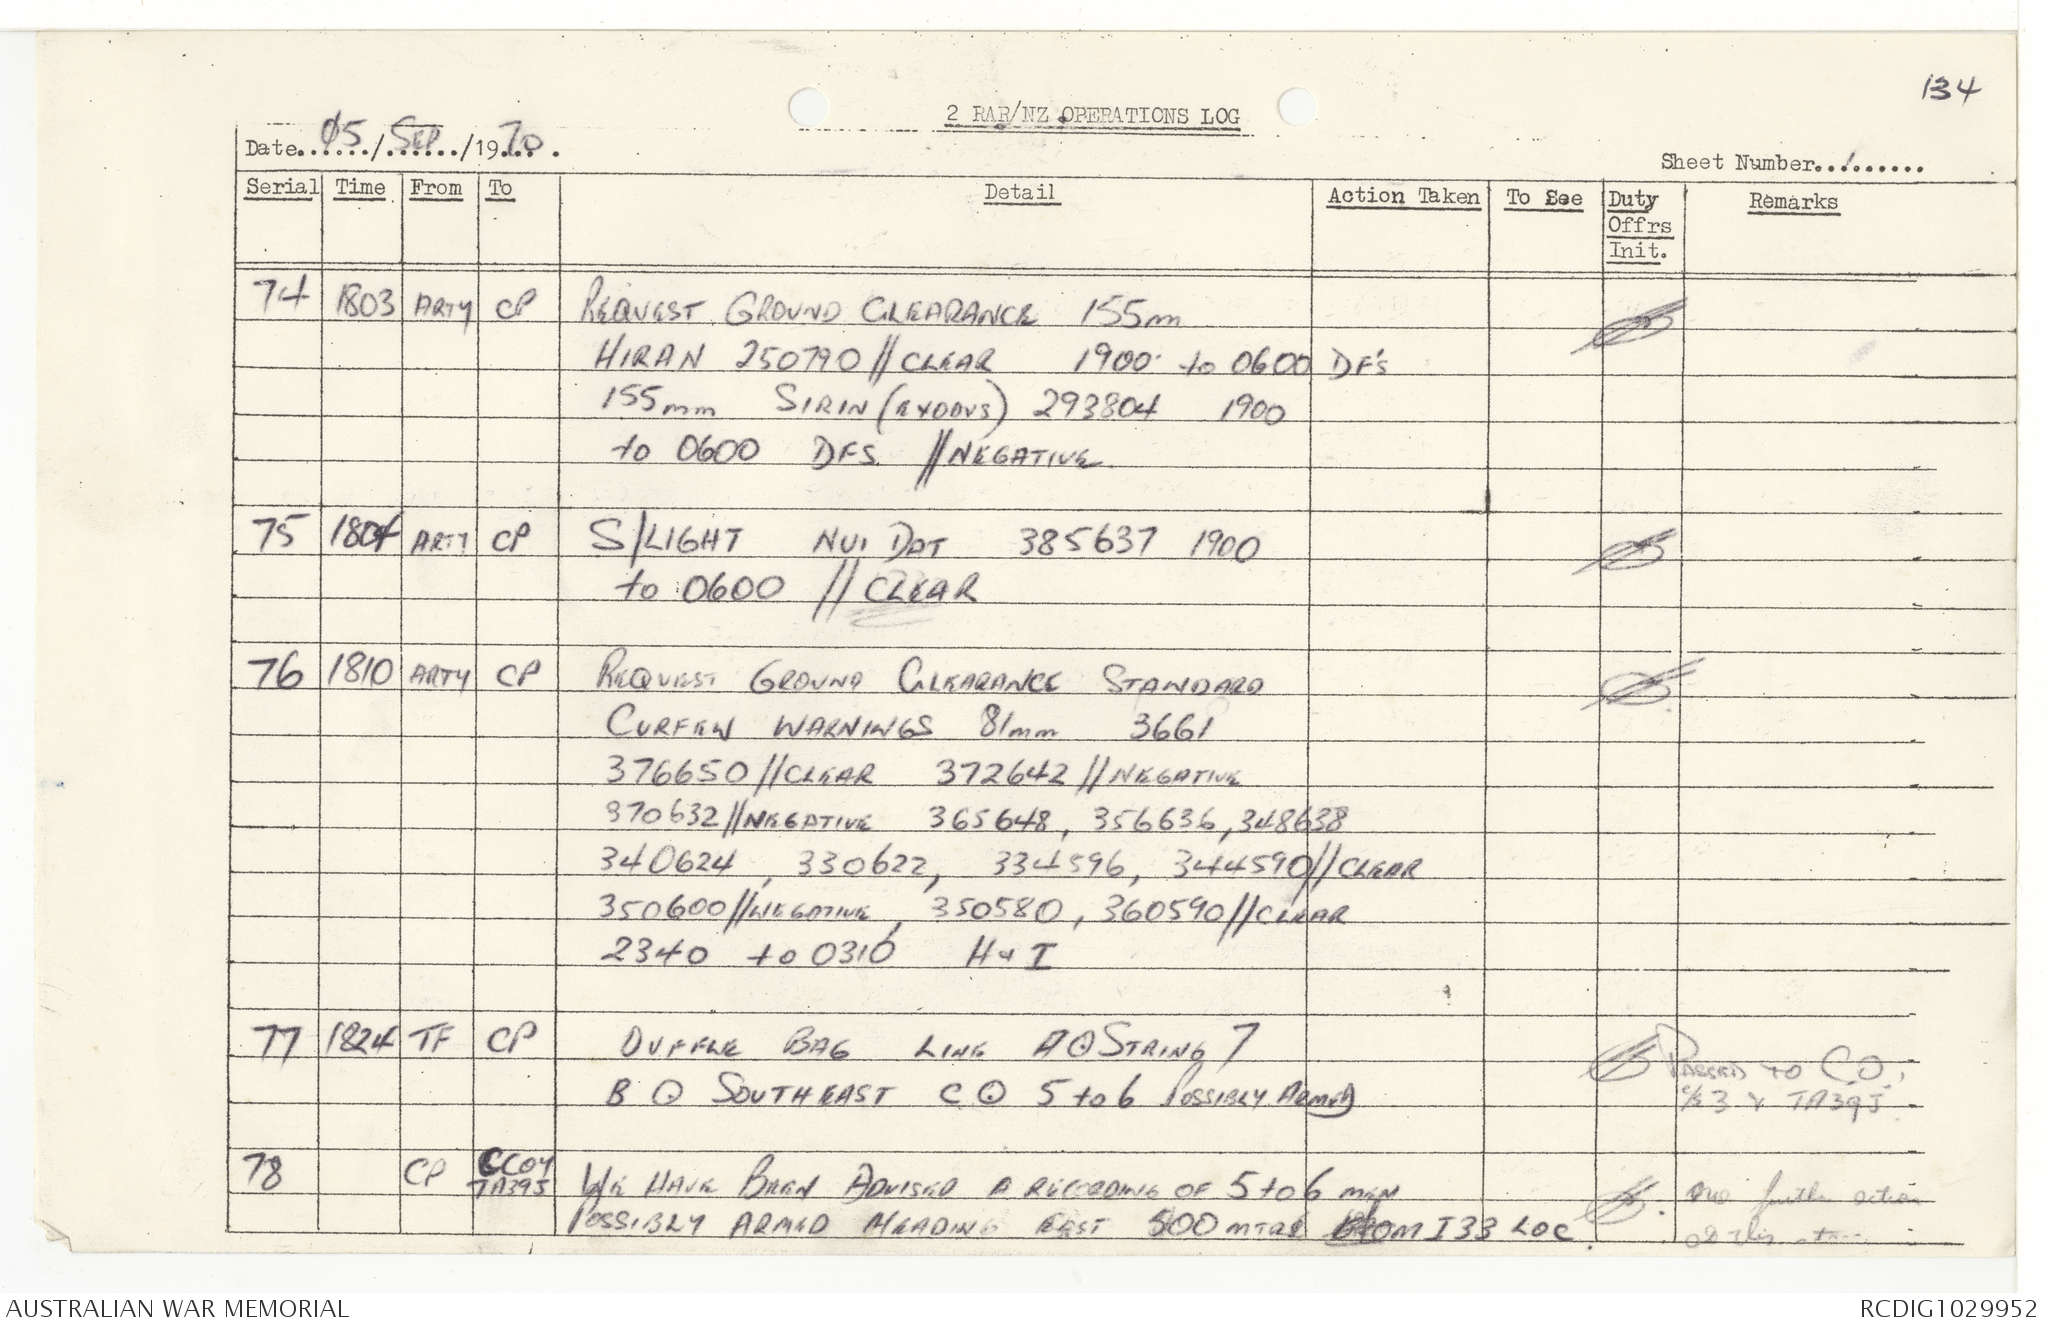 134
2 RAR/NZ OPERATIONS LOG
Date 05/SEP/1970.
Sheet Number 1
Serial Time From To Detail Action Taken To See Duty Offrs Init. Remarks
74 1803 ARTY CP REQUEST GROUND CLEARANCE 155m
HIRAN 250790//CLEAR 1900 to 0600 DF's
155mm SIRIN (EXODUS) 293804 1900
to 0600 DFS //NEGATIVE
75 1804 ARTY CP S/LIGHT NUI DAT 385637 1900
to 0600 // CLEAR
76 1810 ARTY CP REQUEST GROUND CLEARANCE STANDARD
CURFEW WARNINGS 81mm 3661
376650//CLEAR 372642//NEGATIVE
370632//NEGATIVE 365648, 356636, 348638
340624, 330622, 334596, 344590//CLEAR
350600//NEGATIVE, 350580, 360590//CLEAR
2340 to 0310 H & I
77 1824 TF CP DUFFLE BAG LINE A⊙STRING 7
B ⊙ SOUTHEAST C ⊙ 5 to 6 POSSIBLY ARMED
PASSED TO CO,
c/s 3 & TA39J
78 CP CCOY
TA39J
WE HAVE BEEN ADVISED A RECORDING OF 5 to 6 MEN
POSSIBLY ARMED HEADING EAST 500 MTRS FROM I33 LOC
further action
AUSTRALIAN WAR MEMORIAL
RCDIG1029952